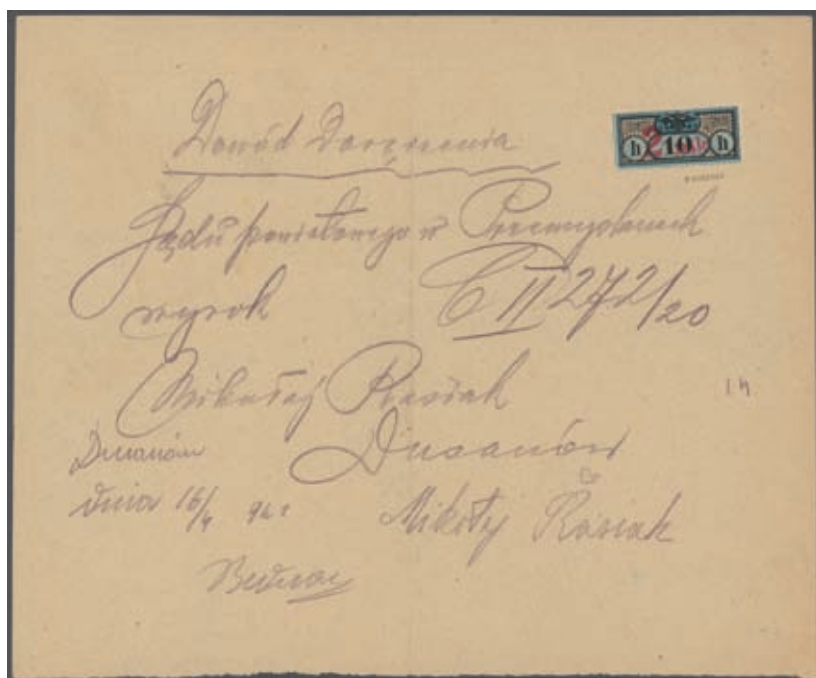 Dowód Doręczenia
h 10 h
Sądu powiatowego w Przemyślanach
wyrok C II 272/20
Mikołaj Rasiak
Dusanów
Dusanów
dnia 16/4 921
Mikołaj Rasiak